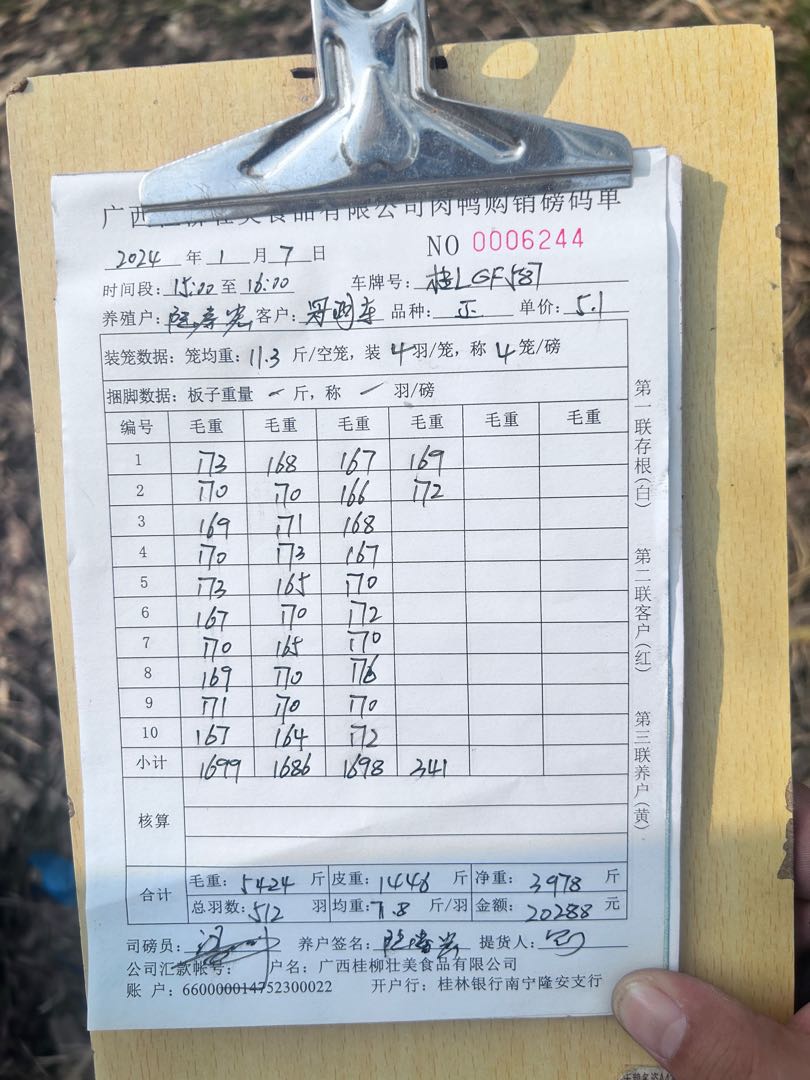 广西桂柳壮美食品有限公司肉鸭购销磅码单
2024 年 1 月 7 日 NO 0006244
时间段: 15:00 至 16:00 车牌号: 桂LGF587
养殖户: 客户: 品种: 正 单价: 5.1
装笼数据: 笼均重: 11.3 斤/空笼, 装 4 羽/笼, 称 4 笼/磅
捆脚数据: 板子重量 一 斤, 称 一 羽/磅
编号 毛重 毛重 毛重 毛重 毛重 毛重
1 173 168 167 169
2 170 170 166 172
3 169 171 168
4 170 173 167
5 173 165 170
6 167 170 172
7 170 165 170
8 169 170 176
9 171 170 170
10 167 164 172
小计 1699 1686 1698 341
核算
合计 毛重: 5424 斤 皮重: 1446 斤 净重: 3978 斤
总羽数: 512 羽 均重: 7.8 斤/羽 金额: 20288 元
司磅员: 养户签名: 提货人:
公司汇款帐号: 户名: 广西桂柳壮美食品有限公司
账 户: 660000014752300022 开户行: 桂林银行南宁隆安支行
第一联存根(白) 第二联客户(红) 第三联养户(黄)